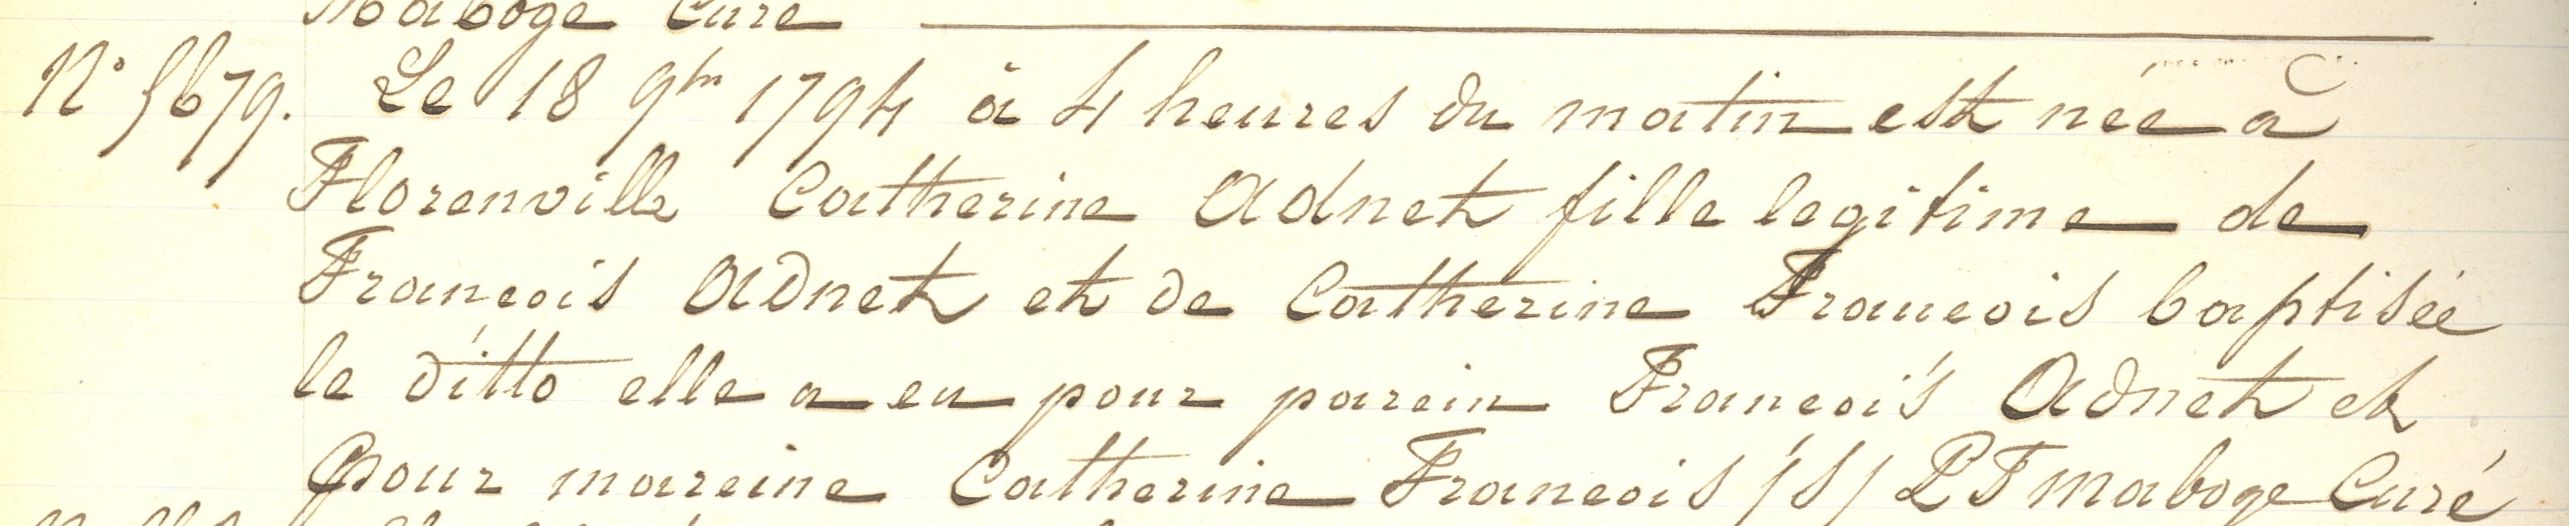 Maboge Curé
N° 5679. Le 18 9bre 1794 à 4 heures du matin est née à
Florenville Catherine Adnet fille legitime de
Francois Adnet et de Catherine Francois baptisée
le ditto elle a eu pour parein Francois Adnet et
pour mareine Catherine Francois /S/ P F Maboge Curé